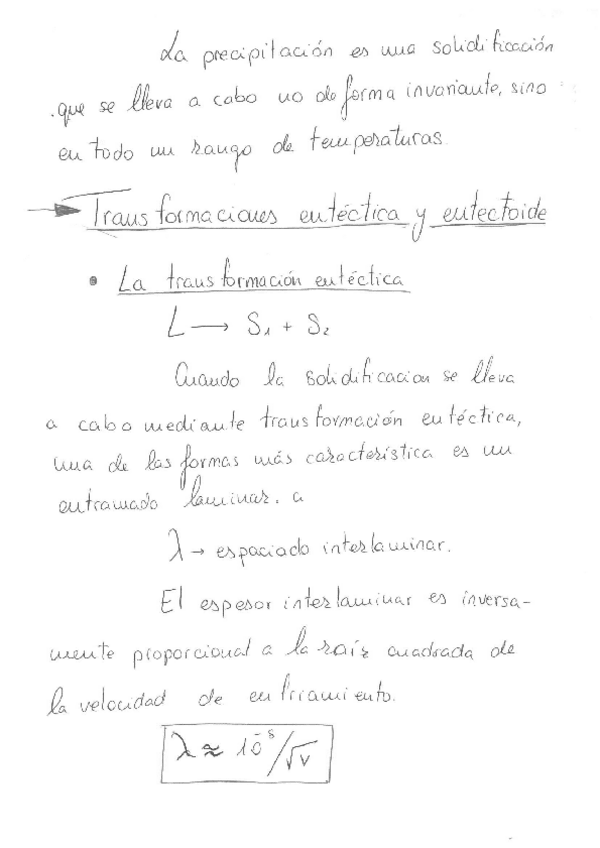 La precipitación es una solidificación
que se lleva a cabo no de forma invariante, sino
en todo un rango de temperaturas.
→ Transformaciones eutéctica y eutectoide
• La transformación eutéctica
L → S₁ + S₂
Cuando la solidificacion se lleva
a cabo mediante transformación eutéctica,
una de las formas más característica es un
entramado laminar. a
λ → espaciado interlaminar.
El espesor interlaminar es inversa-
mente proporcional a la raíz cuadrada de
la velocidad de enfriamiento.
λ ≈ 10⁻⁵/√v